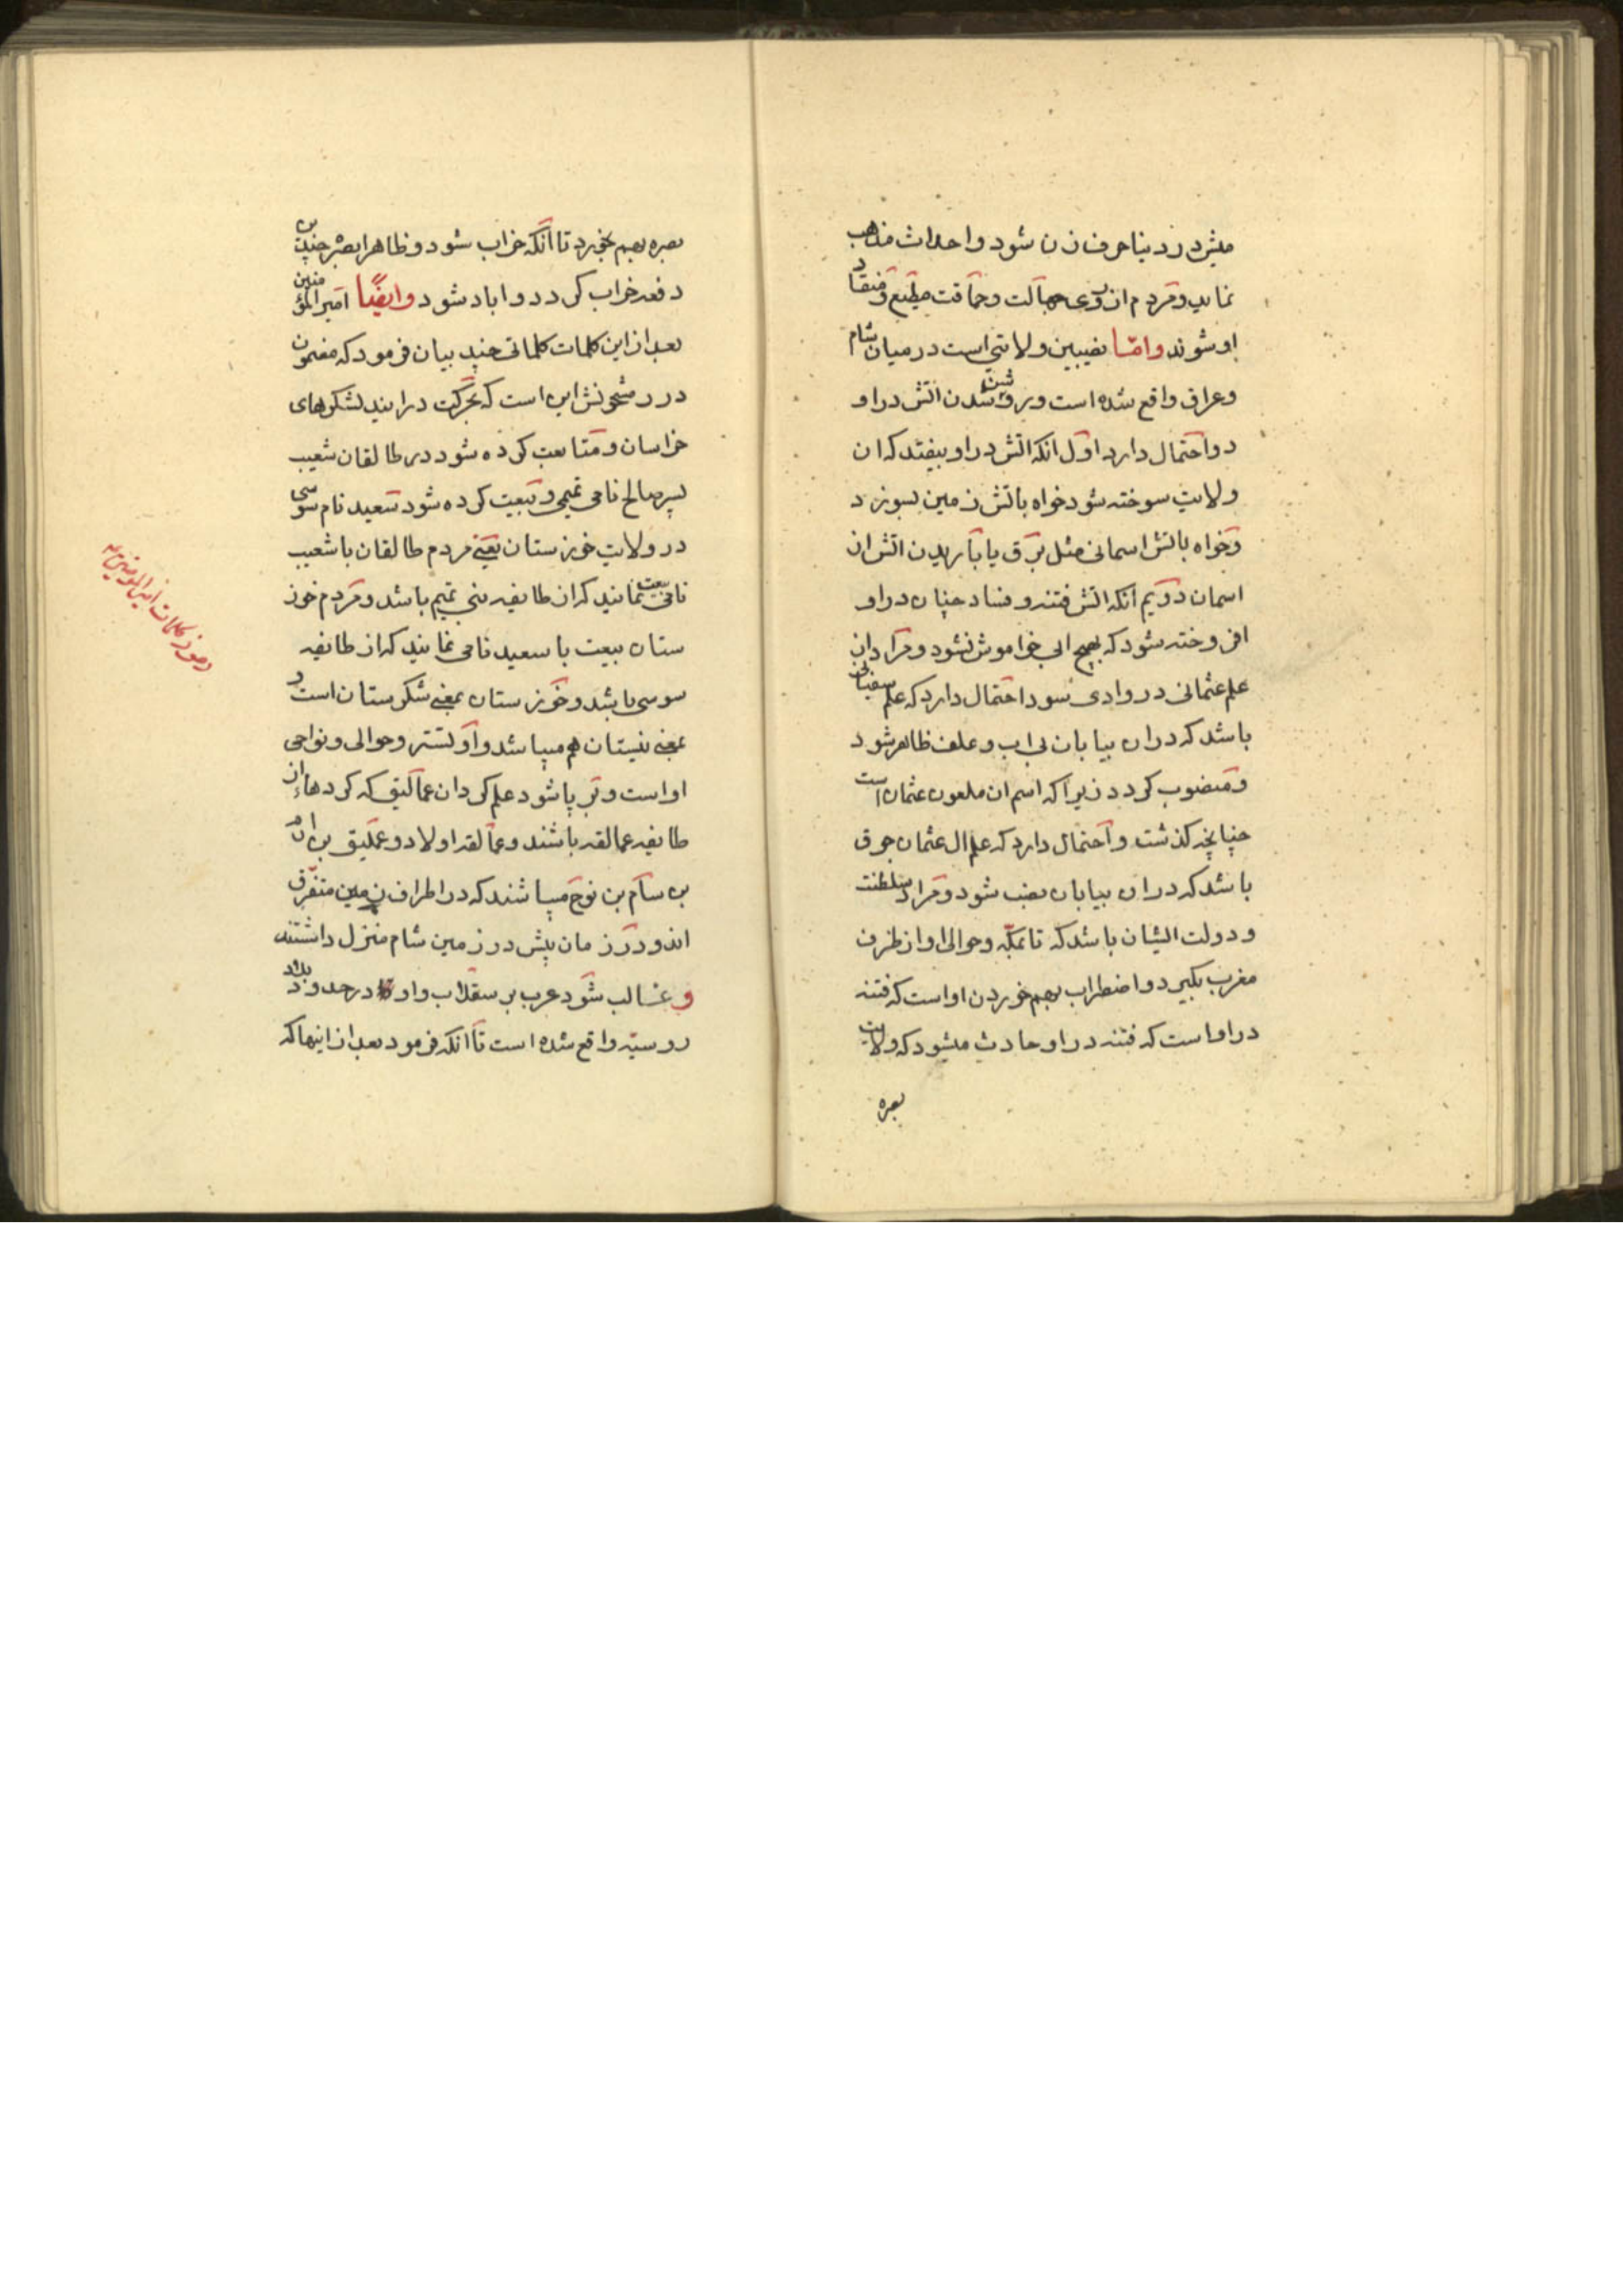 میشرد در دنیا حرف زن شود و احداث مذاهب
نماید و مردم از روی جهالت و حماقت مطیع و منقاد
او شوند واما نصیبین ولایتی است در میان شام
و عراق واقع شده است و بر روشن شدن اتش در او
دو احتمال دارد اول انکه اتش در او بیفتد که ان
ولایت سوخته شود خواه باتش زمین بسوزد
و خواه باتش اسمانی مثل برق یا باریدن اتش از
اسمان دویم آنکه اتش فتنه و فساد چنان در او
افروخته شود که بهیچ ابی خواموش نشود و مراد از
علم عثمانی در وادی سود احتمال دارد که علم سفیانی
باشد که در ان بیابان بی اب و علف ظاهر شود
و منصوب کردد زیرا که اسم ان ملعون عثمان است
چنانچه کذشت و احتمال دارد که علم ال عثمان جوق
باشد که در ان بیابان نصب شود و مراد سلطنت
و دولت ایشان باشد که تا مکه و حوالی او از طرف
مغرب بکیرد و اضطراب بهم خوردن او است که فتنه
در او است که فتنه در او حادث میشود که ولایت
بصره
بصره بهم بخورد تا آنکه خراب شود و ظاهرا بصره چندین
دفعه خراب کردد و اباد شود وایضًا امیر المؤمنین
بعد از این کلمات کلماتی چند بیان فرمود که مضمون
در رمشحونش این است که بحرکت درایند لشکرهای
خراسان و متابعت کرده شود در طالقان شعیب
پسر صالح نامی تمیمی و بیعت کرده شود سعید نام سوسی
در ولایت خوزستان یعنی مردم طالقان با شعیب
نامی بیعت نمایند که از طایفه بنی تمیم باشد و مردم خوز
ستان بیعت با سعید نامی نمایند که از طایفه
سوسی باشد و خوزستان بمعنی شکرستان است و
بمعنی نیستان هم میباشد و او تستر و حوالی و نواحی
او است و بر پا شود علم کردان عمالیق که کردهای از
طایفه عمالقه باشند و عمالقه اولاد و عملیق بن ارم
بن سام بن نوح میباشند که در اطراف زمین متفرق
اند و در زمان پیش در زمین شام منزل داشتند
و غالب شود عرب بر سقلاب و او در حدود بلاد
روسیه واقع شده است تا آنکه فرمود بعد از اینها که
رموز کلمات امیر المومنین